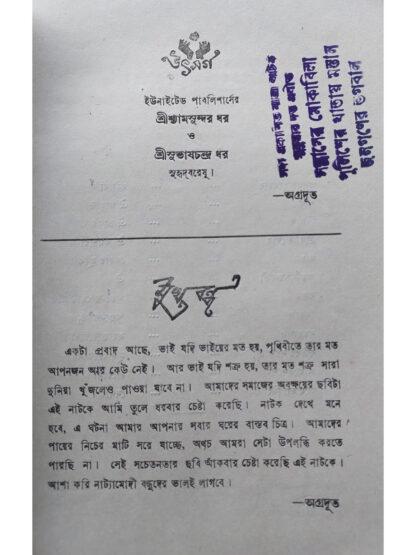 উৎসর্গ
ইউনাইটেড পাবলিশার্সের
শ্রীশ্যামসুন্দর ধর
ও
শ্রীসুভাষচন্দ্র ধর
সুহৃদবরেষু।
—অগ্রদূত
সন্ত্রাসের মোকাবিলা
পুলিশের খাতায় মস্তান
জনগণের ভগবান
মুখবন্ধ
একটা প্রবাদ আছে, ভাই যদি ভাইয়ের মত হয়, পৃথিবীতে তার মত
আপনজন আর কেউ নেই। আর ভাই যদি শত্রু হয়, তার মত শত্রু সারা
দুনিয়া খুঁজলেও পাওয়া যাবে না। আমাদের সমাজের অবক্ষয়ের ছবিটা
এই নাটকে আমি তুলে ধরবার চেষ্টা করেছি। নাটক দেখে মনে
হবে, এ ঘটনা আমার আপনার সবার ঘরের বাস্তব চিত্র। আমাদের
পায়ের নিচের মাটি সরে যাচ্ছে, অথচ আমরা সেটা উপলব্ধি করতে
পারছি না। সেই সচেতনতার ছবি আঁকবার চেষ্টা করেছি এই নাটকে।
আশা করি নাট্যামোদী বন্ধুদের ভালই লাগবে।
—অগ্রদূত